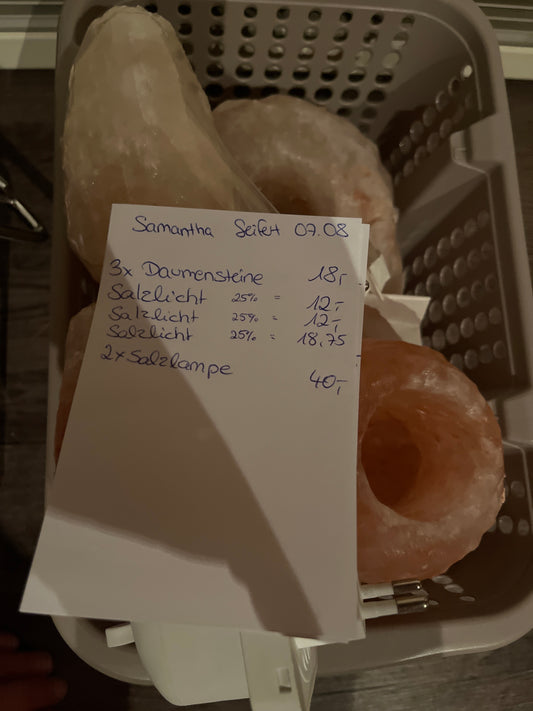 Samantha Seifert 07.08
3x Daumensteine 18,-
Salzlicht 25% = 12,-
Salzlicht 25% = 12,-
Salzlicht 25% = 18,75
2x Salzlampe 40,-